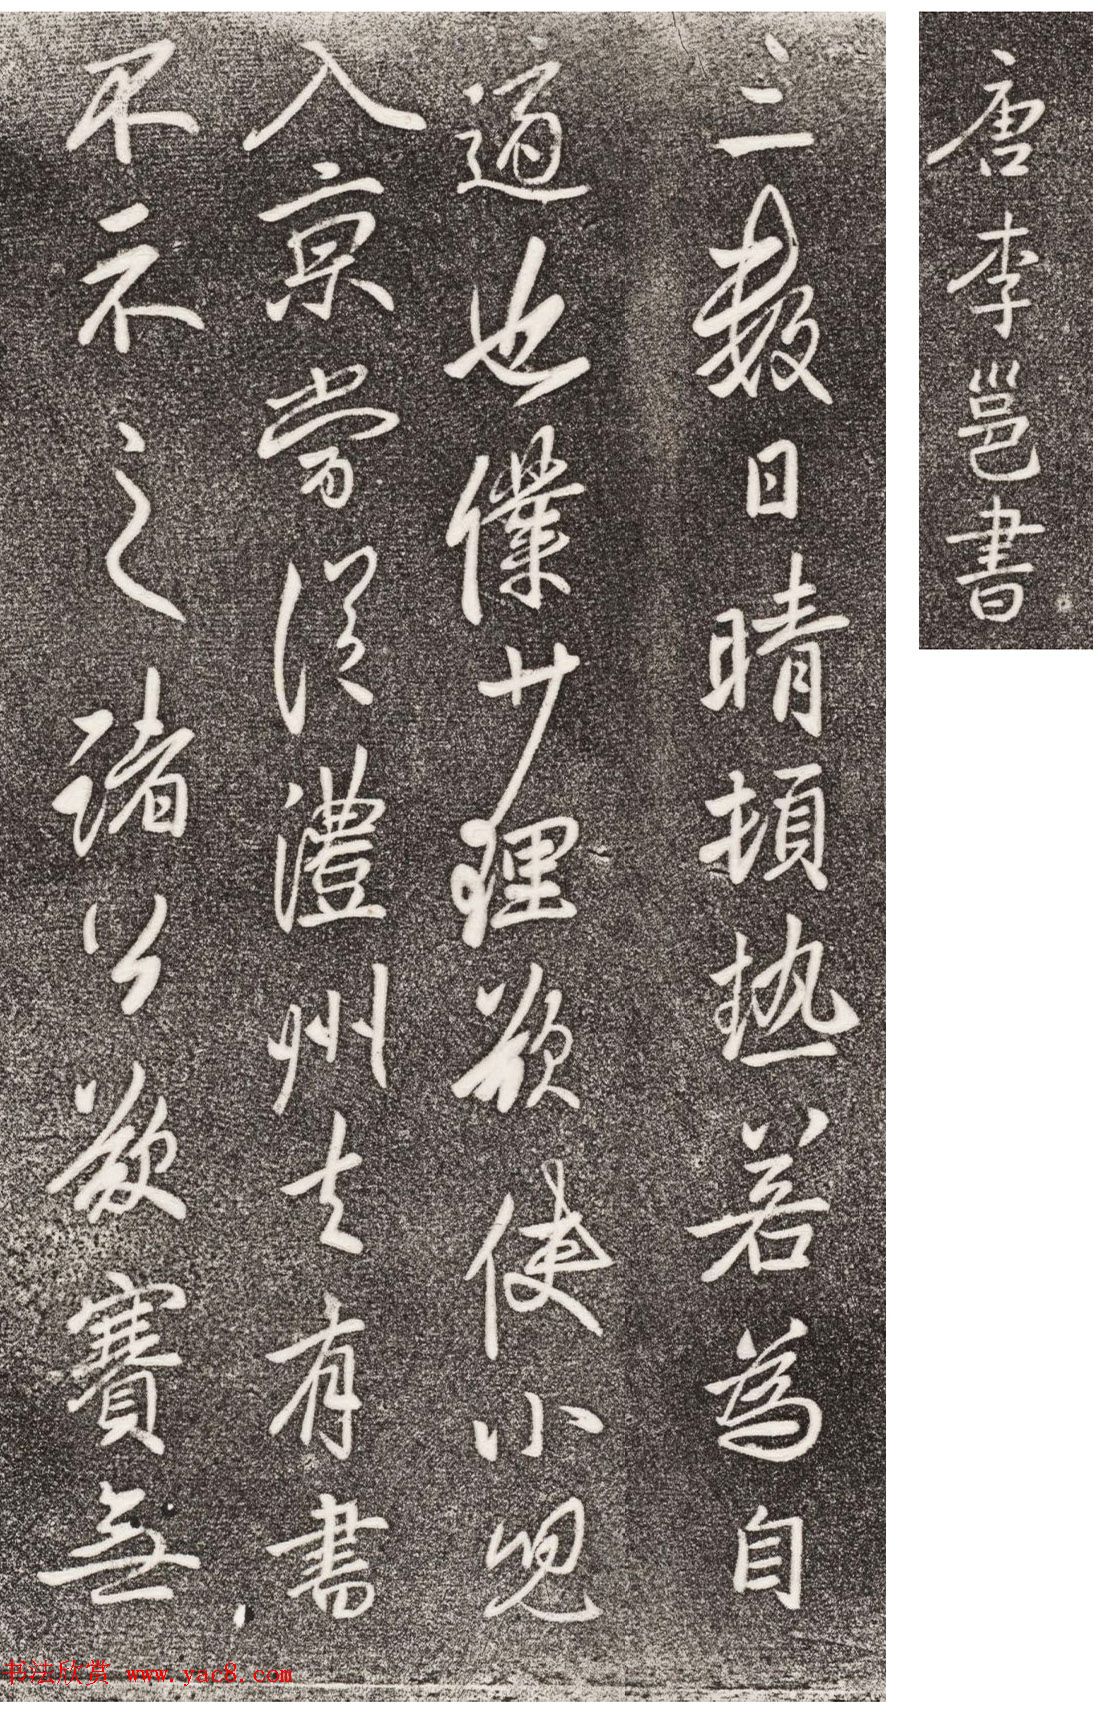 唐李邕書
三數日晴頓熱若為自
適也僕少理欲使小兒
入京嘗從澧州去有書
不示之諸公欲賽無
书法欣赏 www.yac8.com